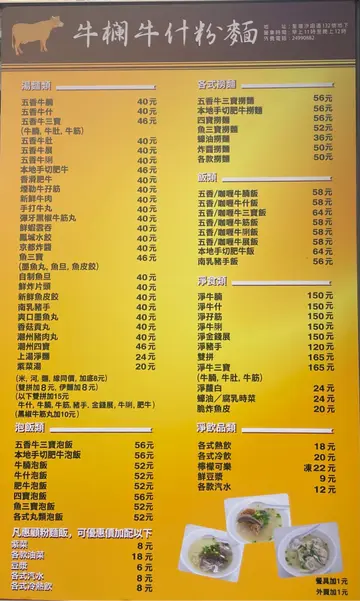 牛欄牛什粉麵
地　　址：荃灣沙咀道132號地下
營業時間：早上11時至晚上12時
外賣電話：24990882
湯麵類
五香牛腩 40元
五香牛什 40元
五香牛三寶 46元
(牛腩, 牛肚, 牛筋)
五香牛肚 40元
五香牛展 40元
五香牛脷 40元
本地手切肥牛 46元
香滑肥牛 40元
爽滑牛孖筋 40元
新鮮牛肉 40元
手打牛丸 40元
彈牙黑椒牛筋丸 40元
鮮蝦雲吞 40元
鳳城水餃 40元
京都炸醬 40元
魚三寶 46元
(墨魚丸, 魚旦, 魚皮餃)
自制魚旦 40元
鮮炸片頭 40元
新鮮魚皮餃 40元
南乳豬手 40元
爽口墨魚丸 40元
香菇貢丸 40元
潮州豬肉丸 40元
潮州四寶 46元
上湯淨麵 24元
紫菜湯 20元
(米, 河, 麵, 線同價, 加底6元)
(雙拼加8元, 伊麵加8元)
(以下雙拼加15元
牛什, 牛腩, 牛筋, 豬手, 金錢展, 牛脷, 肥牛)
(黑椒牛筋丸加10元)
泡飯類
五香牛三寶泡飯 56元
本地手切肥牛泡飯 56元
牛腩泡飯 52元
牛什泡飯 52元
肥牛泡飯 52元
四寶泡飯 56元
魚三寶泡飯 56元
各式丸類泡飯 52元
凡惠顧粉麵飯，可優惠價加配以下
紫菜 8元
各款油菜 18元
豆漿 6元
各式汽水 8元
各式冷熱飲 8元
各式撈麵
五香牛三寶撈麵 56元
本地手切肥牛撈麵 56元
四寶撈麵 56元
魚三寶撈麵 52元
蠔油撈麵 36元
炸醬撈麵 50元
各款撈麵 50元
飯類
五香/咖喱牛腩飯 58元
五香/咖喱牛什飯 58元
五香/咖喱牛三寶飯 64元
五香/咖喱牛筋飯 58元
五香/咖喱牛脷飯 58元
五香/咖喱牛展飯 58元
本地手切肥牛飯 64元
南乳豬手飯 56元
淨食類
淨牛腩 150元
淨牛什 150元
淨孖筋 150元
淨牛脷 150元
淨金錢展 150元
淨豬手 120元
雙拼 165元
淨牛三寶 165元
(牛腩, 牛肚, 牛筋)
淨蘿白 24元
蠔油／腐乳時菜 24元
脆炸魚皮 20元
淨飲品類
各式熱飲 18元
各式冷飲 20元
檸檬可樂 凍22元
鮮豆漿 9元
各款汽水 12元
餐具加1元
外賣加1元